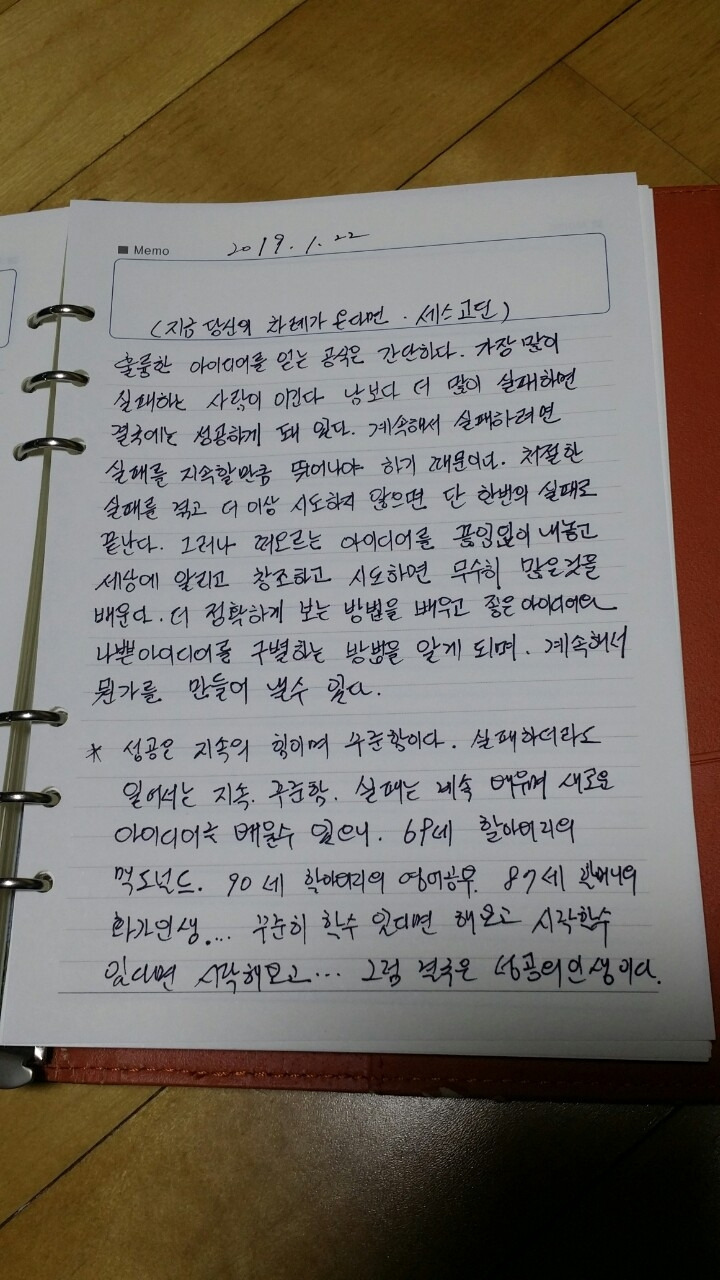 Memo 2019. 1. 22
(지금 당신의 차례가 온다면 · 세스고딘)
훌륭한 아이디어를 얻는 공식은 간단하다. 가장 많이
실패하는 사람이 이긴다 남보다 더 많이 실패하면
결국에는 성공하게 돼 있다. 계속해서 실패하려면
실패를 지속할만큼 뛰어나야 하기 때문이다. 처절한
실패를 겪고 더 이상 시도하지 않으면 단 한번의 실패로
끝난다. 그러나 떠오르는 아이디어를 끊임없이 내놓고
세상에 알리고 창조하고 시도하면 무수히 많은것을
배운다. 더 정확하게 보는 방법을 배우고 좋은아이디어와
나쁜아이디어를 구별하는 방법을 알게 되며. 계속해서
뭔가를 만들어 낼수 있다.
* 성공은 지속의 힘이며 꾸준함이다. 실패하더라도
일어서는 지속. 꾸준함. 실패는 계속 배우며 새로운
아이디어를 배울수 있으니. 69세 할아버지의
맥도널드. 90세 할아버지의 영어공부. 87세 할머니의
화가인생.... 꾸준히 할수 있다면 해보고 시작할수
있다면 시작해보고... 그럼 결국은 성공의인생이다.